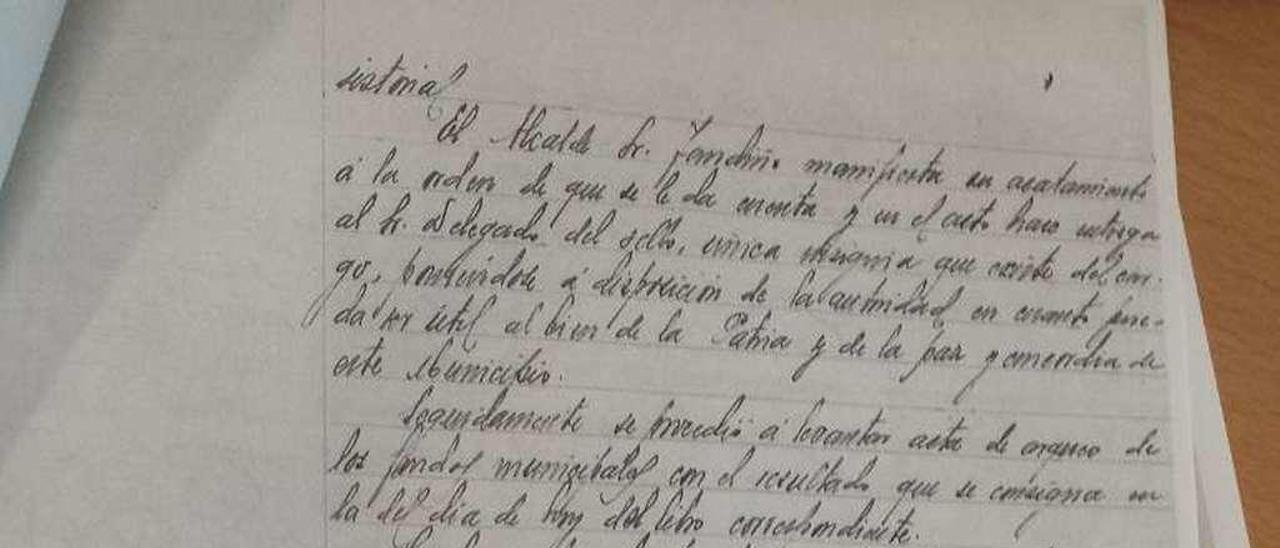 sistorial
El Alcalde Sr. Fandiño manifiesta su acatamiento
á la orden de que se le da cuenta y en el acto hace entrega
al Sr. Delegado del sello, única insignia que existe del car-
go, poniéndose á disposición de la autoridad en cuanto pue-
da ser útil al bien de la Patria y de la paz y concordia de
este Municipio.
Seguidamente se procedió á levantar acta de arqueo de
los fondos municipales con el resultado que se consigna en
la del día de hoy del libro correspondiente.